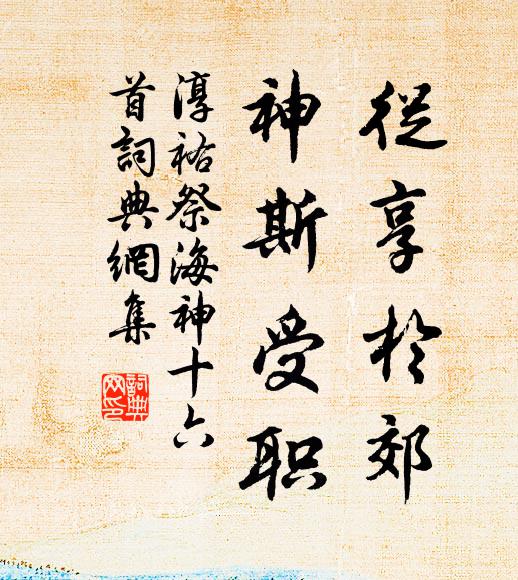 從享於郊
神斯受职
淳祐祭海神十六
首詞典網集
詞典
网印